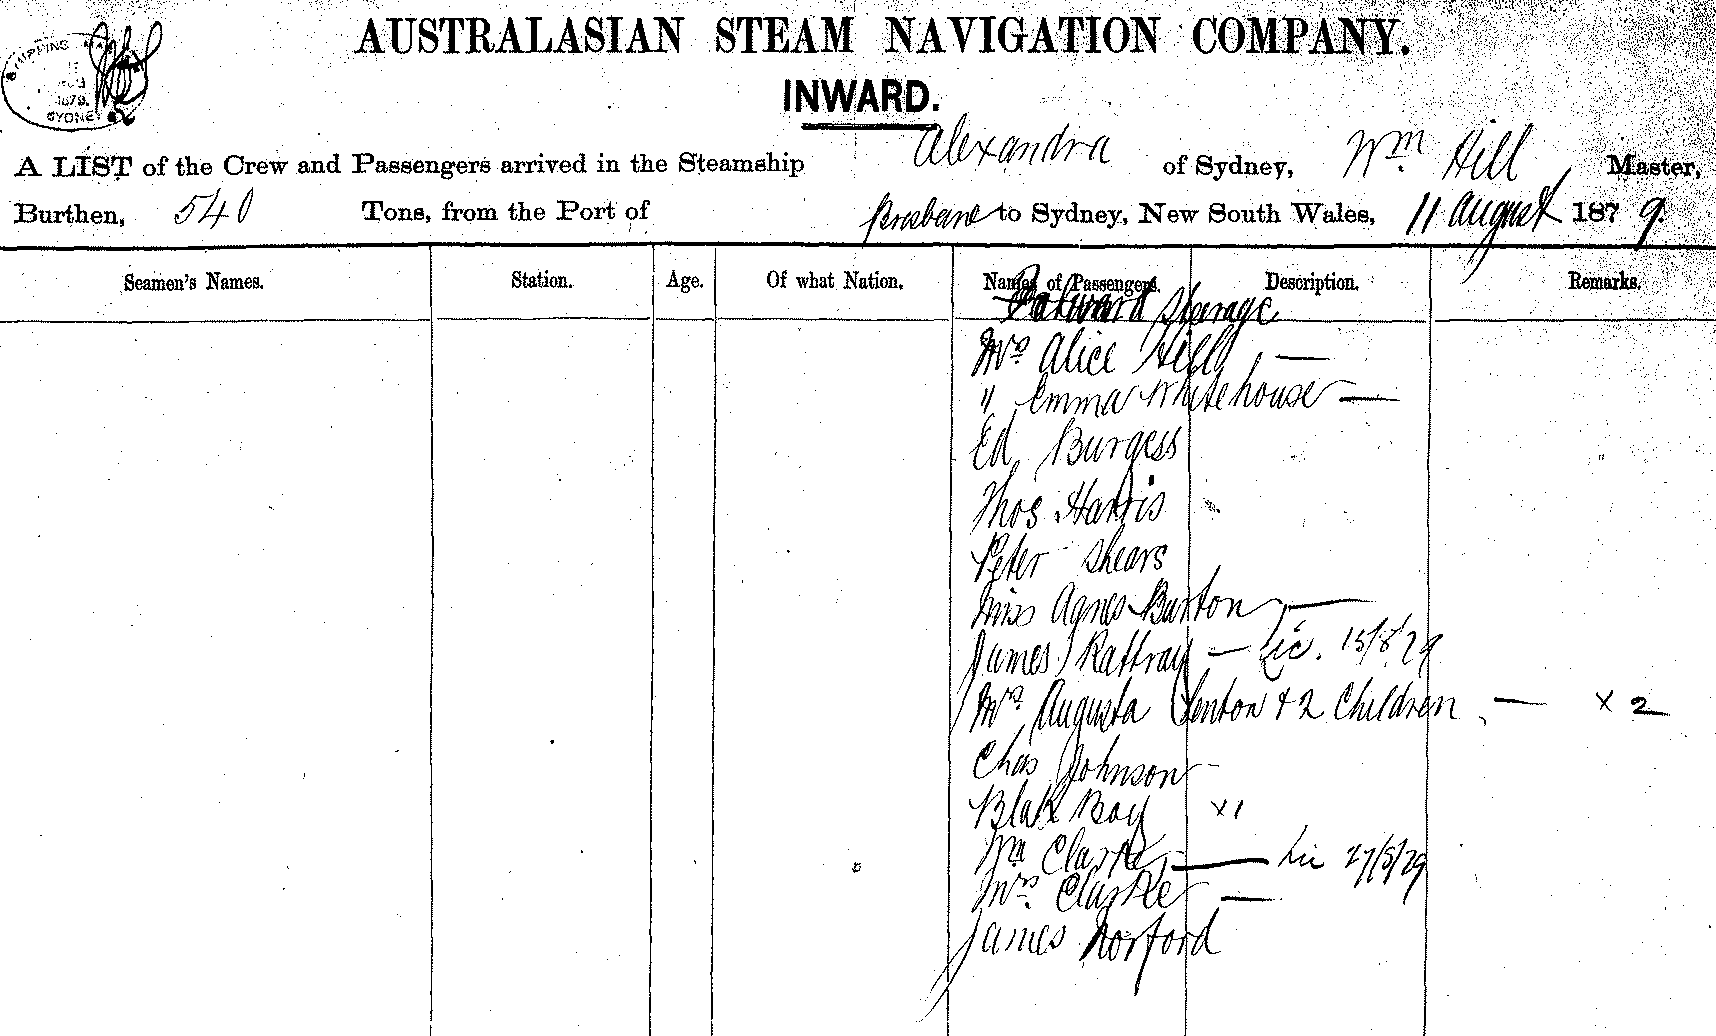 SHIPPING MAS
1879.
SYDNEY
AUSTRALASIAN STEAM NAVIGATION COMPANY.
INWARD.
A LIST of the Crew and Passengers arrived in the Steamship Alexandra of Sydney, Wm. Hill Master,
Burthen, 540 Tons, from the Port of Brisbane to Sydney, New South Wales, 11 August 1879.
Seamen's Names. Station. Age. Of what Nation. Names of Passengers. Description. Remarks.
Steerage
Mrs Alice Hill —
" Emma Whitehouse —
Ed Burgess
Thos Harris
Peter Shears
Miss Agnes Burton —
James Rattray — Lic. 15/8/79
Mrs. Augusta Denton + 2 Children — x 2
Chas Johnson
Blak Boy x 1
Clarke — Lic 27/8/79
Mrs. Clarke —
James Norford